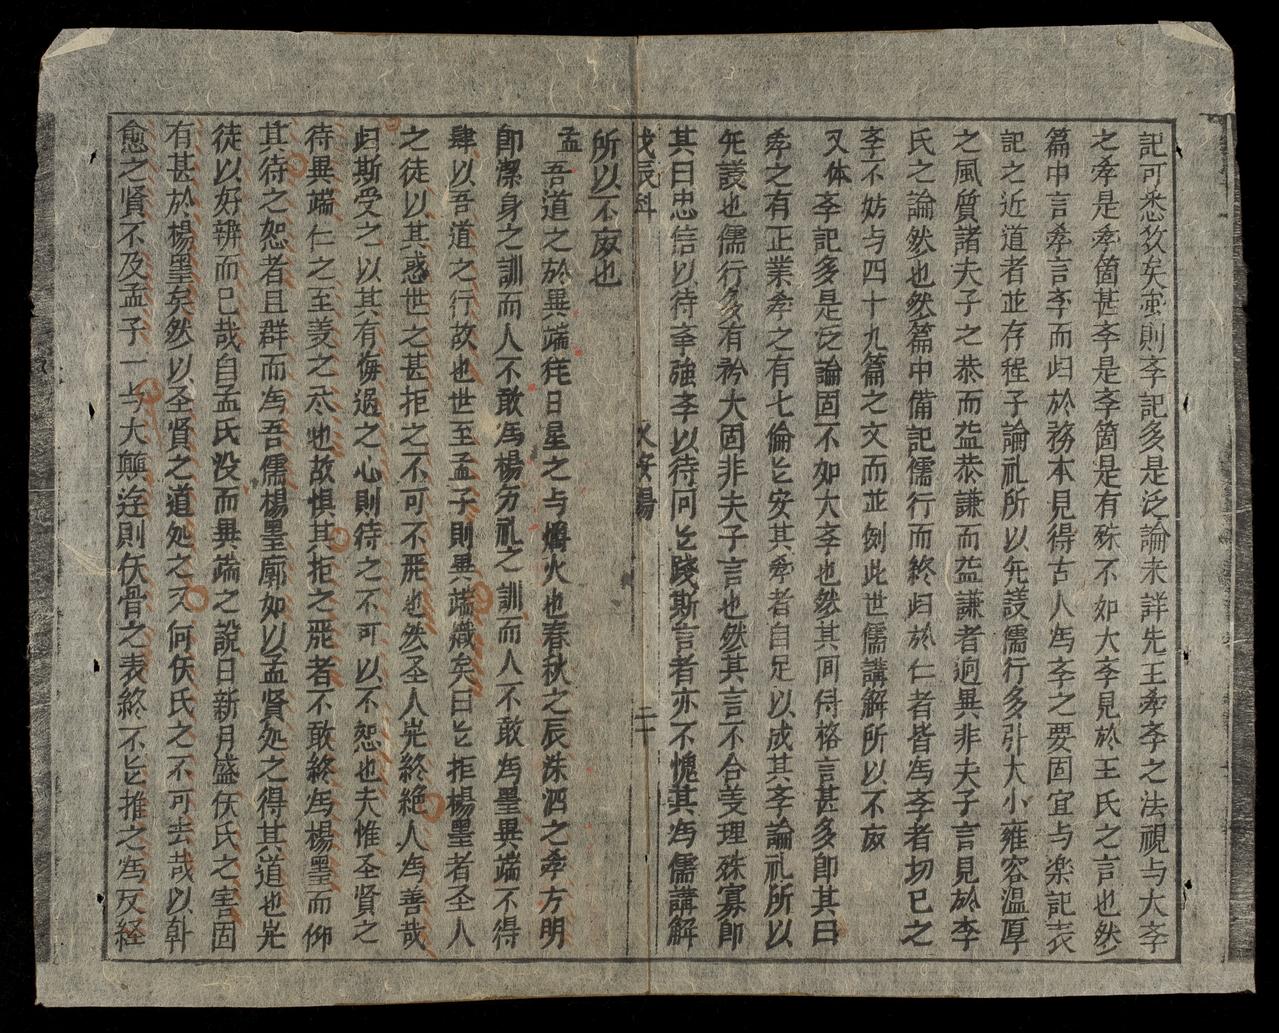 記可悉攷矣蛮則斈記多是泛論未詳先王斈斈之法視与大斈
之斈是斈箇甚斈是斈箇是有殊不如大斈見於王氏之言也然
篇中言斈言斈而归於務本見得古人為斈之要固宜与楽記表
記之近道者並存程子論礼所以先謢儒行多引大小雍容温厚
之風質諸夫子之恭而益恭謙而益謙者逈異非夫子言見於李
氏之論然也然篇中備記儒行而終归於仁者皆為斈者切已之
斈不妨与四十九篇之文而並例此世儒講解所以不废
又体 斈記多是泛論固不如大斈也然其间得格言甚多即其曰
斈之有正業斈之有七倫匕安其斈者自足以成其斈論礼所以
先謢也儒行多有矜大固非夫子言也然其言不合义理殊寡即
其曰忠信以待斈強斈以待问匕踐斯言者亦不愧其為儒講解
戊辰科 文安場 二十
所以不废也
孟 吾道之於異端徃日星之与爝火也春秋之辰洙泗之斈方明
即潔身之訓而人不敢為楊方礼之訓而人不敢為墨異端不得
肆以吾道之行故也世至孟子則異端熾矣曰匕拒楊墨者圣人
之徒以其惑世之甚拒之不可不严也然圣人岂終絶人為善哉
归斯受之以其有悔過之心則待之不可以不恕也夫惟圣賢之
待異端仁之至义之尽也故惧其拒之严者不敢終為楊墨而仰
其待之恕者且群而為吾儒楊墨廓如以孟賢处之得其道也岂
徒以好辨而已哉自孟氏没而異端之說日新月盛仸氏之害固
有甚於楊墨矣然以圣賢之道处之又何仸氏之不可去哉以韩
愈之賢不及孟子一与大顛迬則仸骨之表終不匕推之為反経